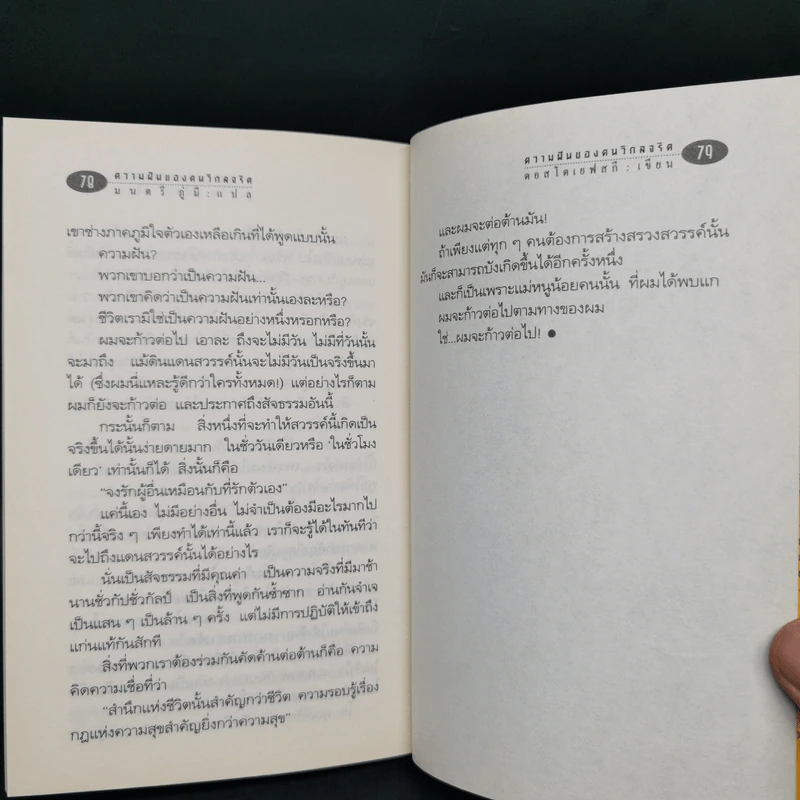 78
ความฝันของคนวิกลจริต
มนตรี ภู่มี : แปล
เขาช่างภาคภูมิใจตัวเองเหลือเกินที่ได้พูดแบบนั้น
ความฝัน?
พวกเขาบอกว่าเป็นความฝัน...
พวกเขาคิดว่าเป็นความฝันเท่านั้นเองละหรือ?
ชีวิตเรามิใช่เป็นความฝันอย่างหนึ่งหรอกหรือ?
ผมจะก้าวต่อไป เอาละ ถึงจะไม่มีวัน ไม่มีที่วันนั้น
จะมาถึง แม้ดินแดนสวรรค์นั้นจะไม่มีวันเป็นจริงขึ้นมา
ได้ (ซึ่งผมนี่แหละรู้ดีกว่าใครทั้งหมด!) แต่อย่างไรก็ตาม
ผมก็ยังจะก้าวต่อ และประกาศถึงสัจธรรมอันนี้
กระนั้นก็ตาม สิ่งหนึ่งที่จะทำให้สวรรค์นี้เกิดเป็น
จริงขึ้นได้นั้นง่ายดายมาก ในชั่ววันเดียวหรือ 'ในชั่วโมง
เดียว' เท่านั้นก็ได้ สิ่งนั้นก็คือ
“จงรักผู้อื่นเหมือนกับที่รักตัวเอง”
แค่นี้เอง ไม่มีอย่างอื่น ไม่จำเป็นต้องมีอะไรมากไป
กว่านี้จริง ๆ เพียงทำได้เท่านี้แล้ว เราก็จะรู้ได้ในทันทีว่า
จะไปถึงแดนสวรรค์นั้นได้อย่างไร
นั่นเป็นสัจธรรมที่มีคุณค่า เป็นความจริงที่มีมาช้า
นานชั่วกัปชั่วกัลป์ เป็นสิ่งที่พูดกันซ้ำซาก อ่านกันจำเจ
เป็นแสน ๆ เป็นล้าน ๆ ครั้ง แต่ไม่มีการปฏิบัติให้เข้าถึง
แก่นแท้กันสักที
สิ่งที่พวกเราต้องร่วมกันคัดค้านต่อต้านก็คือ ความ
คิดความเชื่อที่ว่า
“สำนึกแห่งชีวิตนั้นสำคัญกว่าชีวิต ความรอบรู้เรื่อง
กฎแห่งความสุขสำคัญยิ่งกว่าความสุข”
ความฝันของคนวิกลจริต
ดอสโตเยฟสกี : เขียน
79
และผมจะต่อต้านมัน!
ถ้าเพียงแต่ทุก ๆ คนต้องการสร้างสรวงสวรรค์นั้น
มันก็จะสามารถบังเกิดขึ้นได้อีกครั้งหนึ่ง
และก็เป็นเพราะแม่หนูน้อยคนนั้น ที่ผมได้พบแก
ผมจะก้าวต่อไปตามทางของผม
ใช่...ผมจะก้าวต่อไป! ●